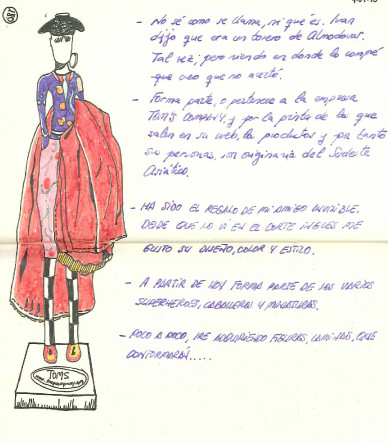 - No sé como se llama, ni qué es. Ivan
dijo que era un torero de Almodovar.
Tal vez; pero viendo en donde lo compré
que creo que no acertó.
- Forma parte, o pertenece a la empresa
TOMS COMPANY, y por la pinta de lo que
salen en su web, la productos y por tanto
su personas, son originaria del Sudeste
Asiático.
- HA SIDO EL REGALO DE MI AMIGO INVISIBLE.
DESDE QUE LO VI EN EL CORTE INGLES ME
GUSTO SU DISEÑO, COLOR Y ESTILO.
- A PARTIR DE HOY FORMA PARTE DE LAS VARIAS
SUPERHEROES, CABALLEROS Y MINIATURAS.
- POCO A POCO, IRE ADQUIRIENDO FIGURAS, LAMINAS, QUE
CONFORMARÁN.....
TOMS